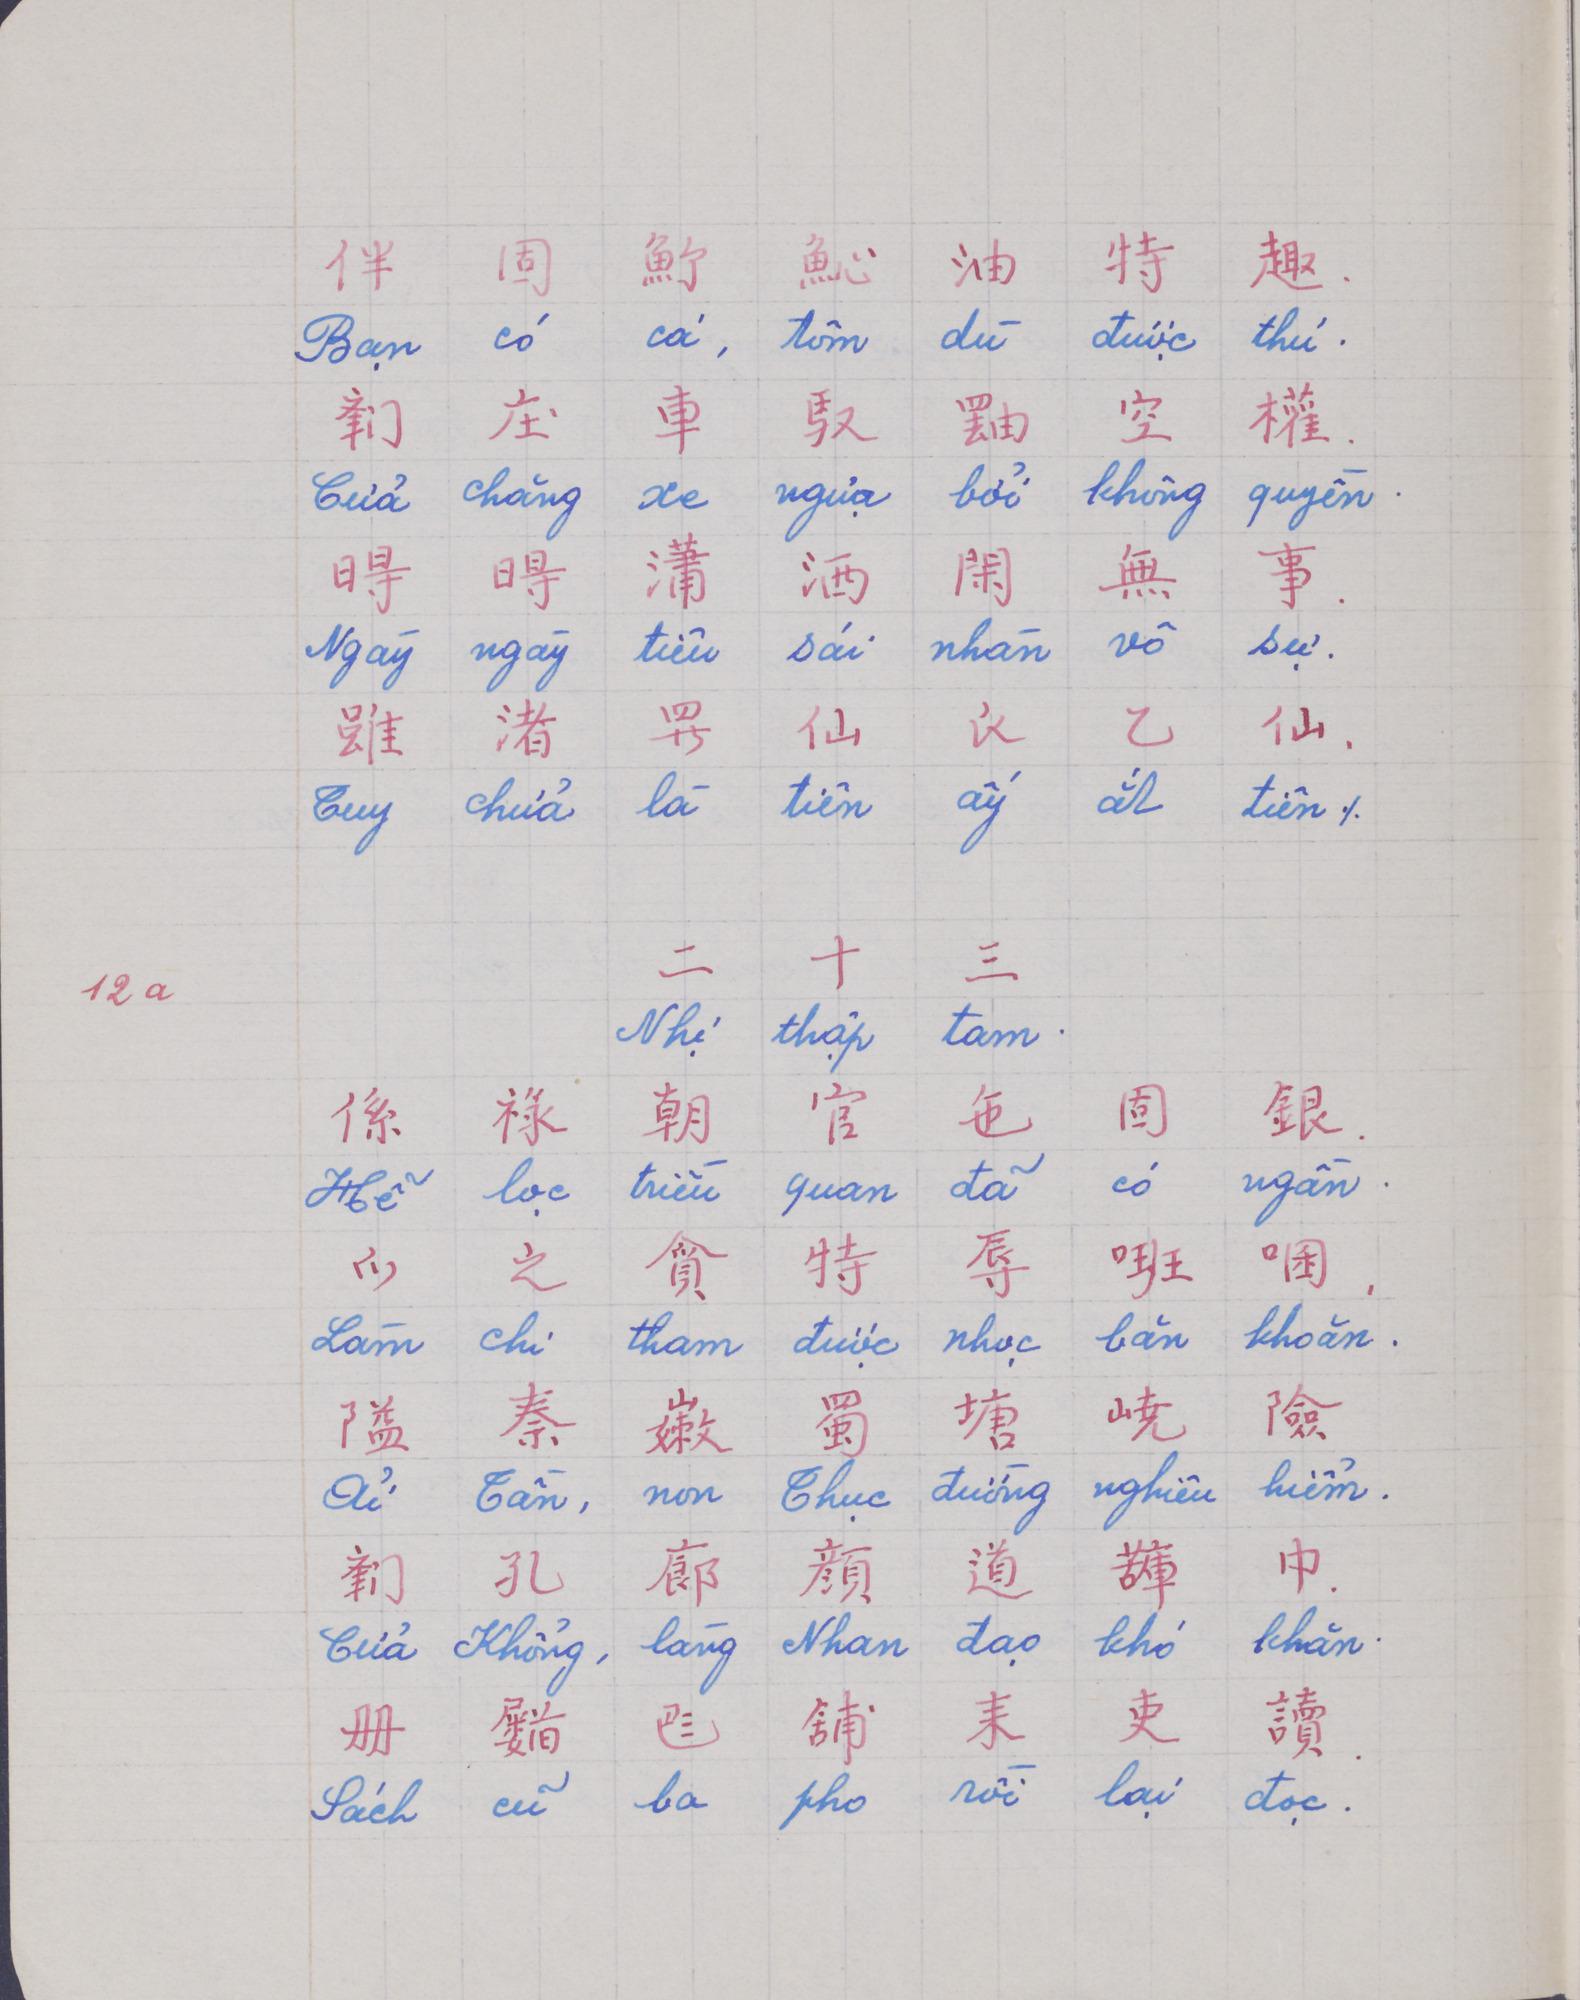 伴 固 𩵜 油 特 趣.
Bạn có cá, tôm dù được thú.
庄 車 馭 空 權.
Cửa chăng xe ngựa bởi không quyền.
㫷 㫷 瀟 洒 閑 無 事.
Ngày ngày tiêu sái nhàn vô sự.
雖 渚 𱺵 仙 乙 仙.
Tuy chửa là tiên ấy ắt tiên ⁒
二 十 三
12a
Nhị thập tam.
係 祿 朝 官 㐌 固 銀.
Hễ lọc triều quan đã có ngần.
之 貪 特 辱 啩.
Làm chi tham được nhọc băn khoăn.
隘 秦 蜀 塘 嶢 險
Ải Tần, non Thục đường nghiêu hiểm.
孔 廊 顏 道 巾.
Cửa Khổng, làng Nhan đạo khó khăn.
册 𠀧 耒 吏 讀.
Sách cũ ba pho rồi lại đọc.